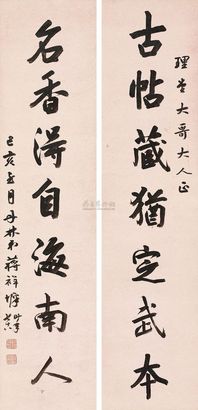 理堂大哥大人正
古帖藏猶定武本
名香得自海南人
己亥五月丹林弟蔣祥墀